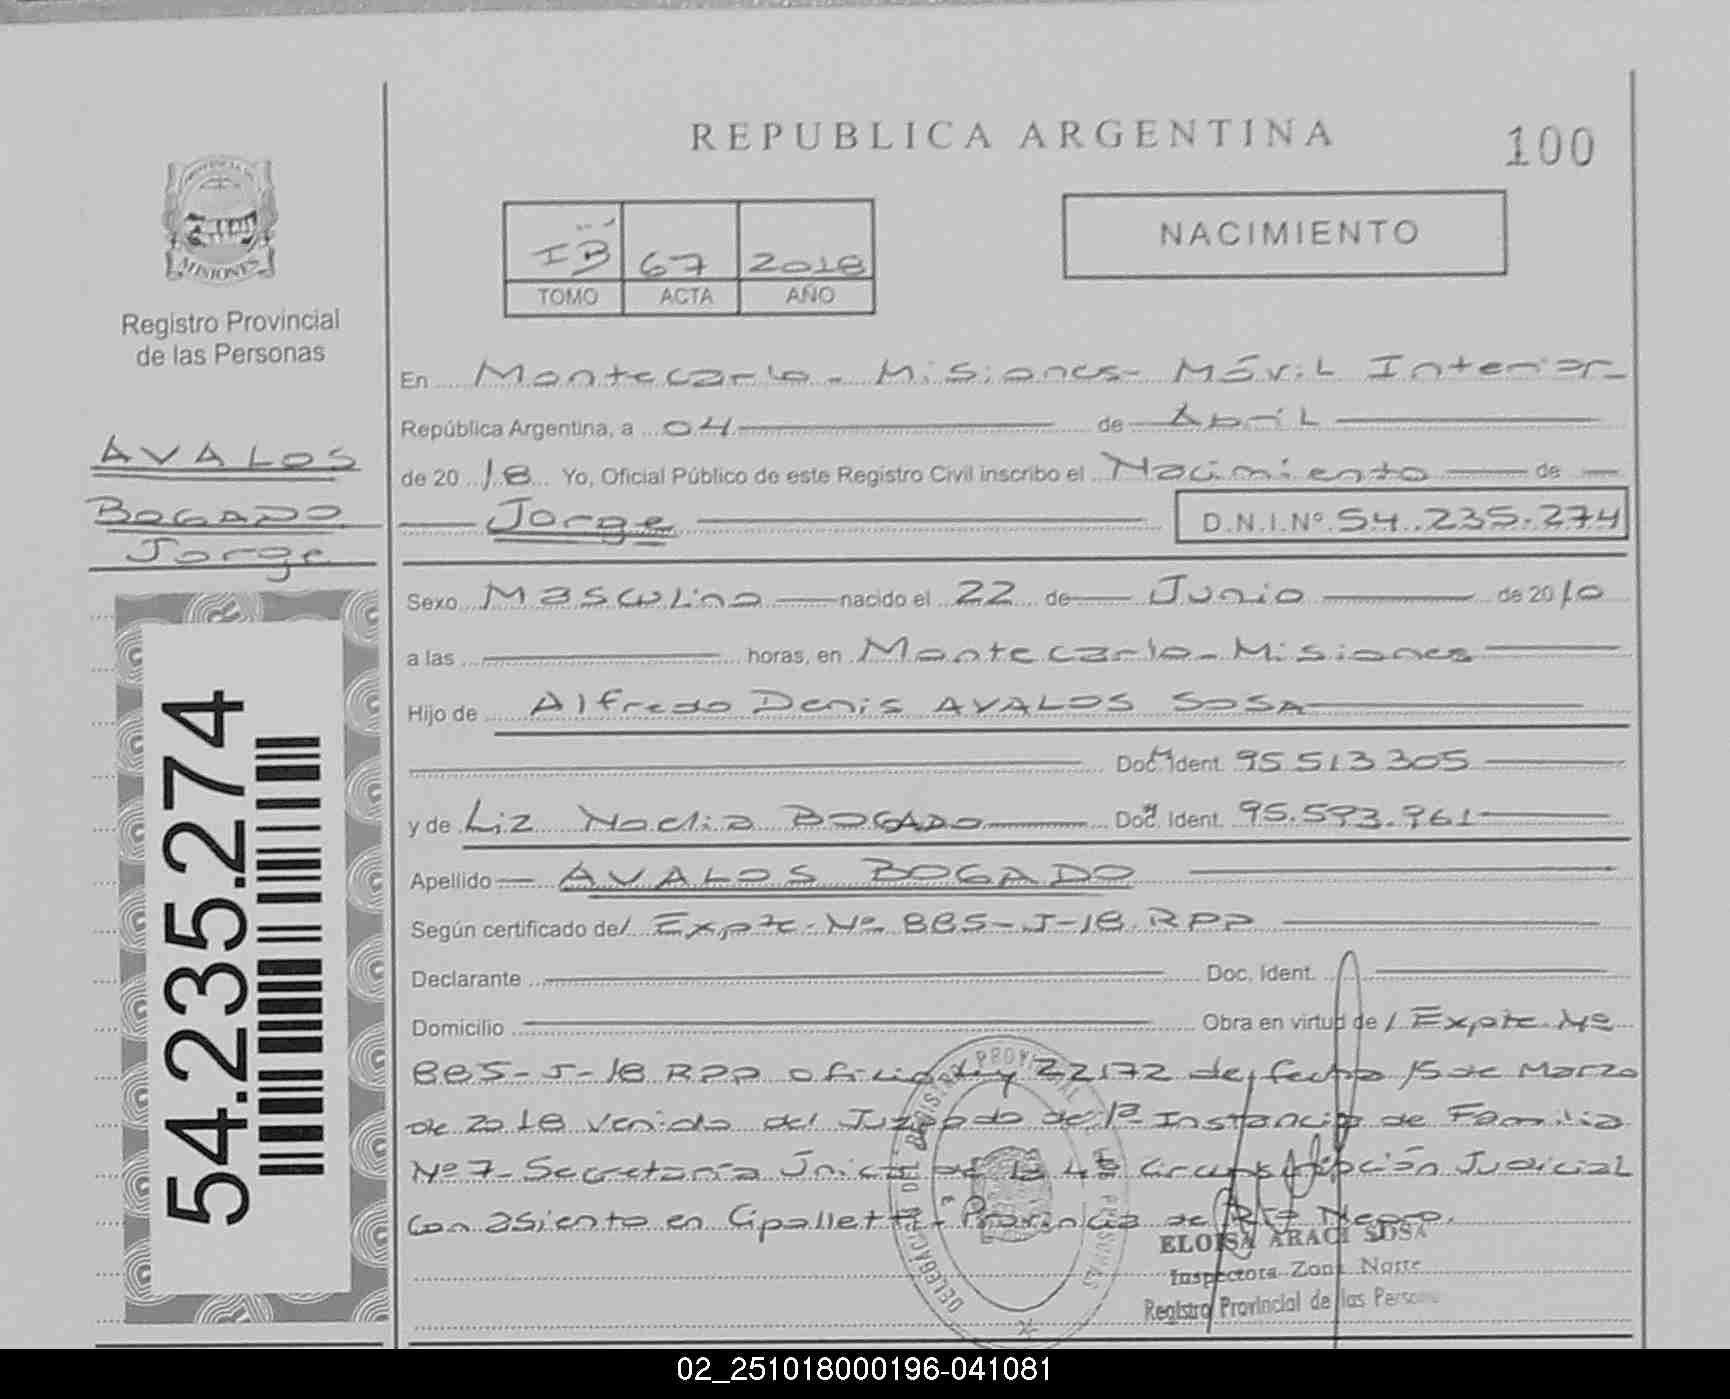 REPUBLICA ARGENTINA
100
MISIONES
Registro Provincial
de las Personas
IB 67 2018
TOMO ACTA AÑO
NACIMIENTO
AVALOS
BOGADO
Jorge
54.235.274
En Montecarlo - Misiones - Móvil Interior
República Argentina, a 04 de Abril
de 2018 Yo, Oficial Público de este Registro Civil inscribo el Nacimiento de
Jorge D.N.I.Nº 54.235.274
Sexo Masculino nacido el 22 de Junio de 2010
a las horas, en Montecarlo - Misiones
Hijo de Alfredo Denis AVALOS SOSA
Doc. Ident. 95.513.305
y de Liz Noelia BOGADO Doc. Ident. 95.593.961
Apellido AVALOS BOGADO
Según certificado de/ Expte. Nº 885-J-18 RPP
Declarante Doc. Ident.
Domicilio Obra en virtud de / Expte Nº
885-J-18 RPP oficio Ley 22172 de fecha 15 de Marzo
de 2018 venido del Juzgado de 1ª Instancia de Familia
Nº 7 - Secretaría Única de la 4ª Circunscripción Judicial
con asiento en Cipolletti - Provincia de Río Negro.
ELOISA ARACI SOSA
Inspectora Zona Norte
Registro Provincial de las Personas
02_251018000196-041081